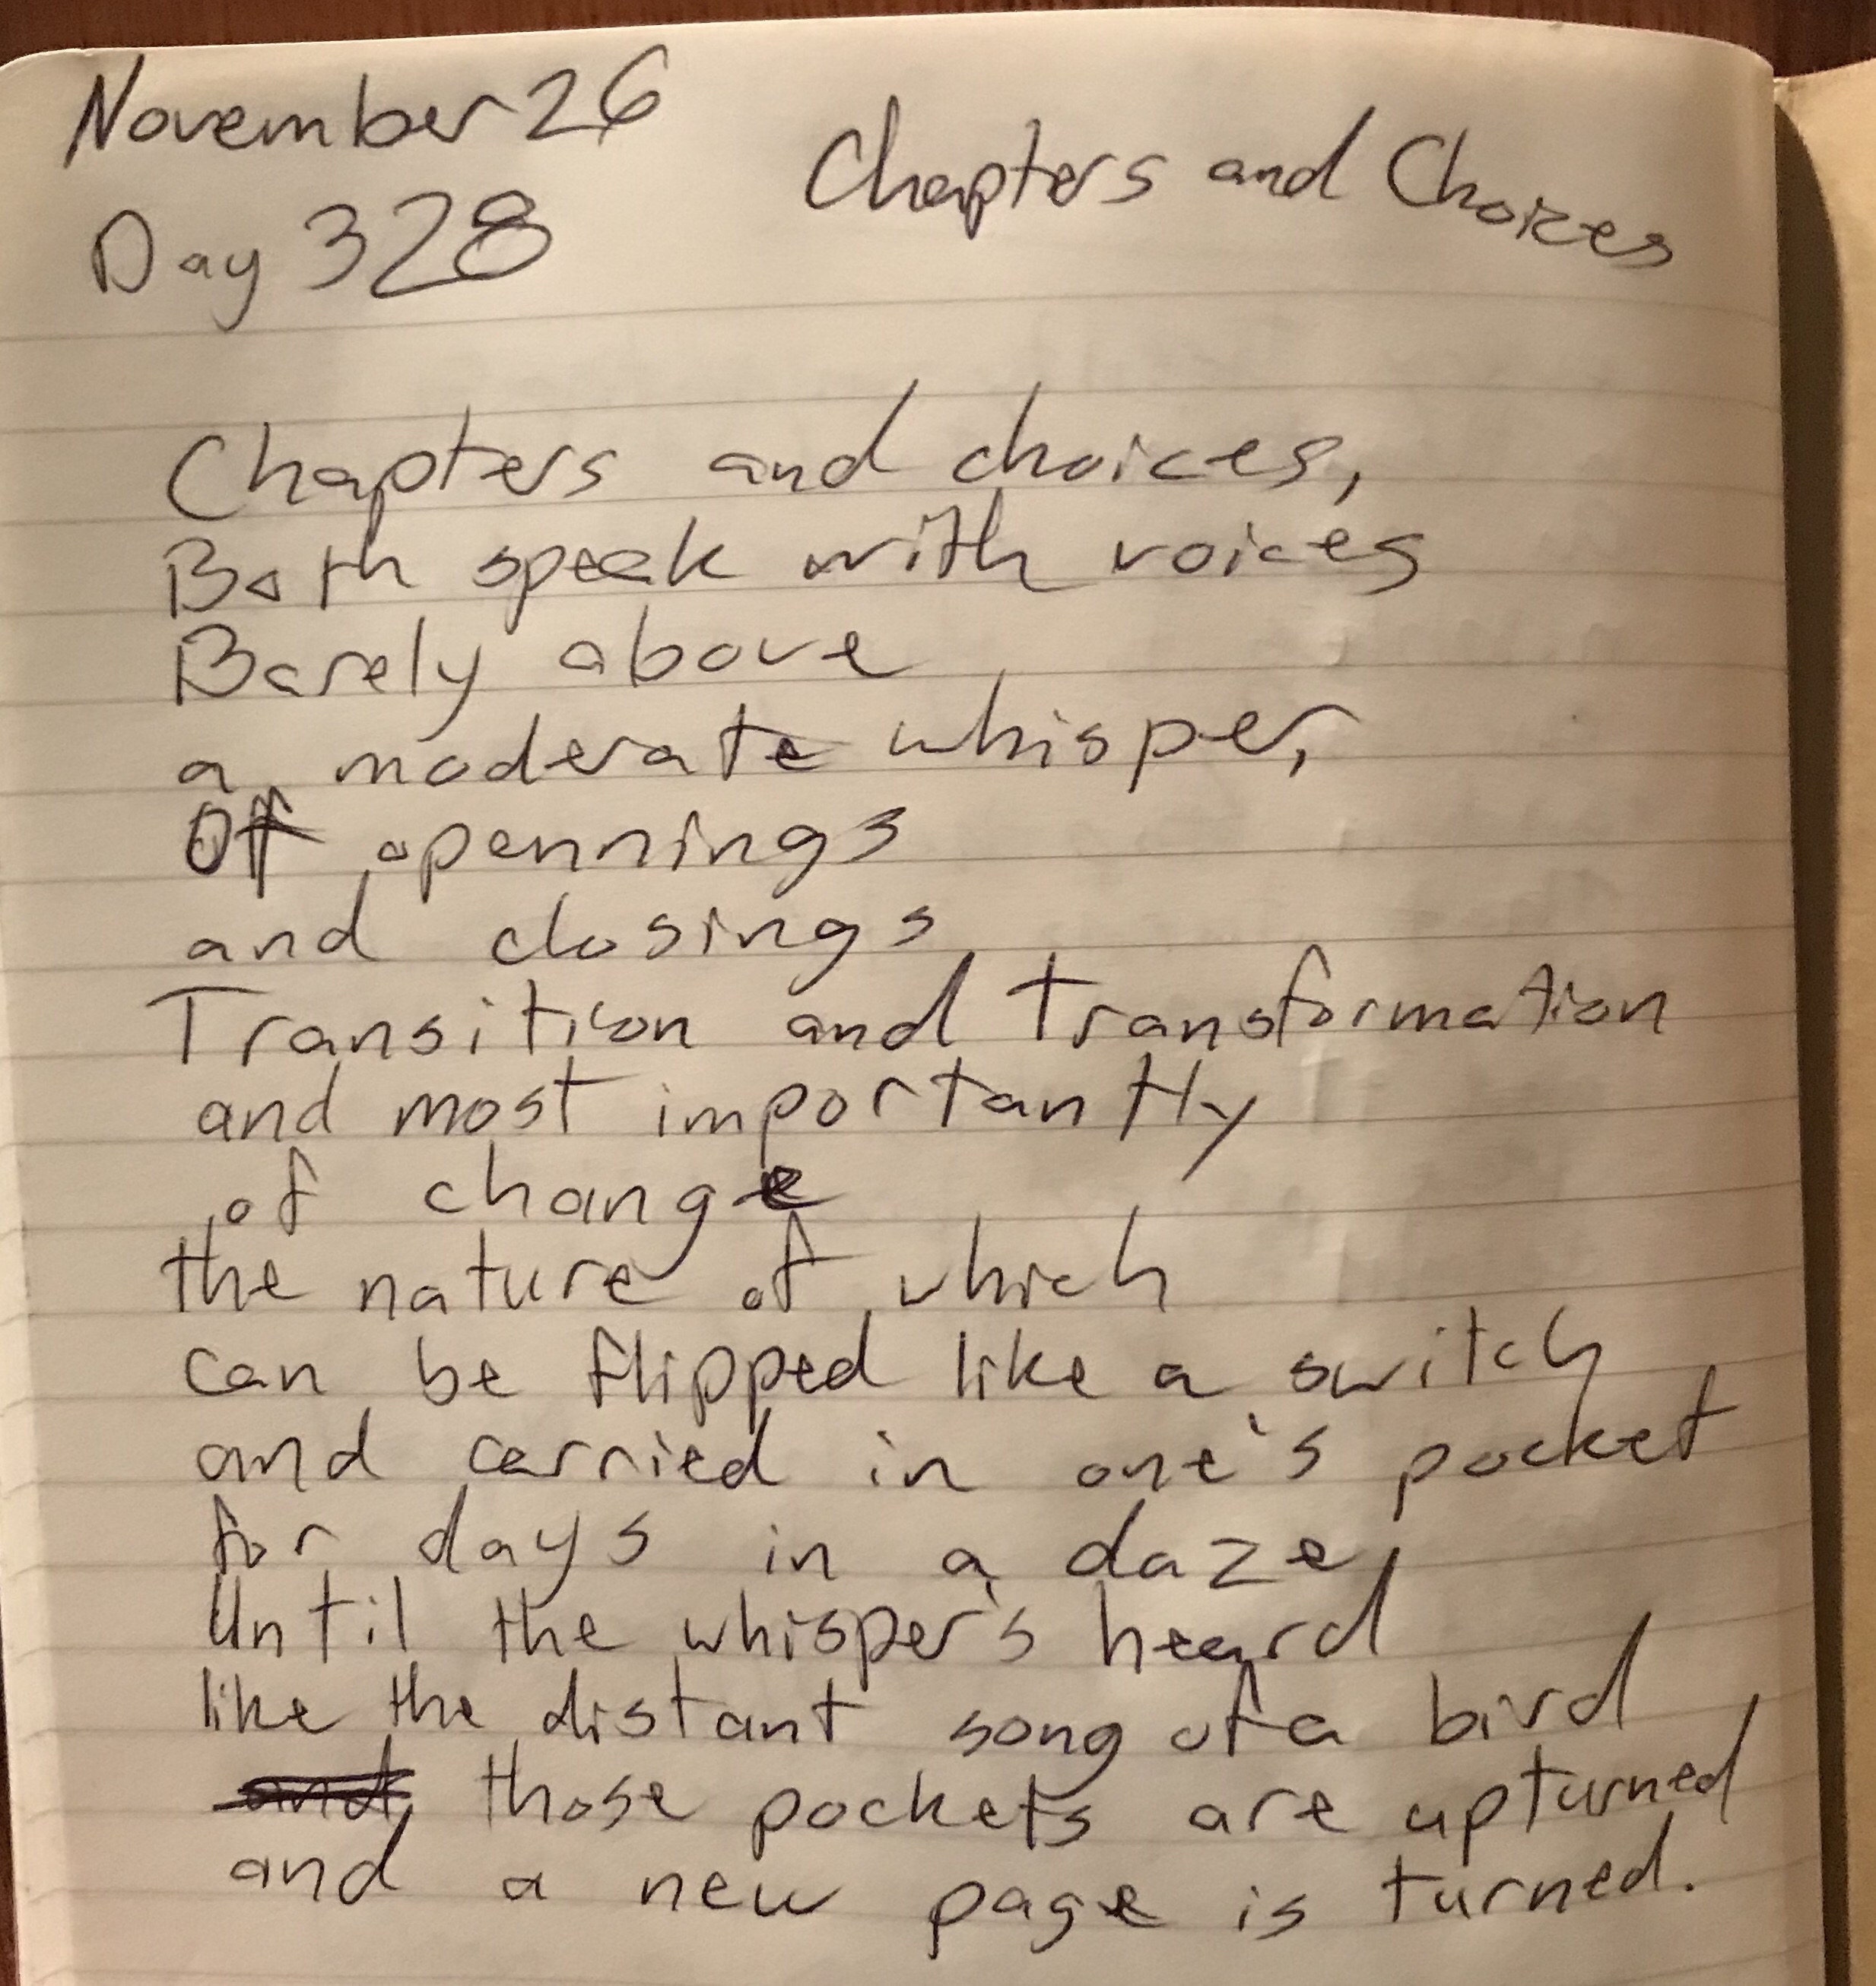 November 26
Chapters and Choices
Day 328
Chapters and choices,
Both speak with voices
Barely above
a moderate whisper,
Of opennings
and closings
Transition and transformation
and most importantly
of change
the nature of which
can be flipped like a switch
and carried in one's pocket
for days in a daze
Until the whisper's heard
like the distant song of a bird
those pockets are upturned
and a new page is turned.